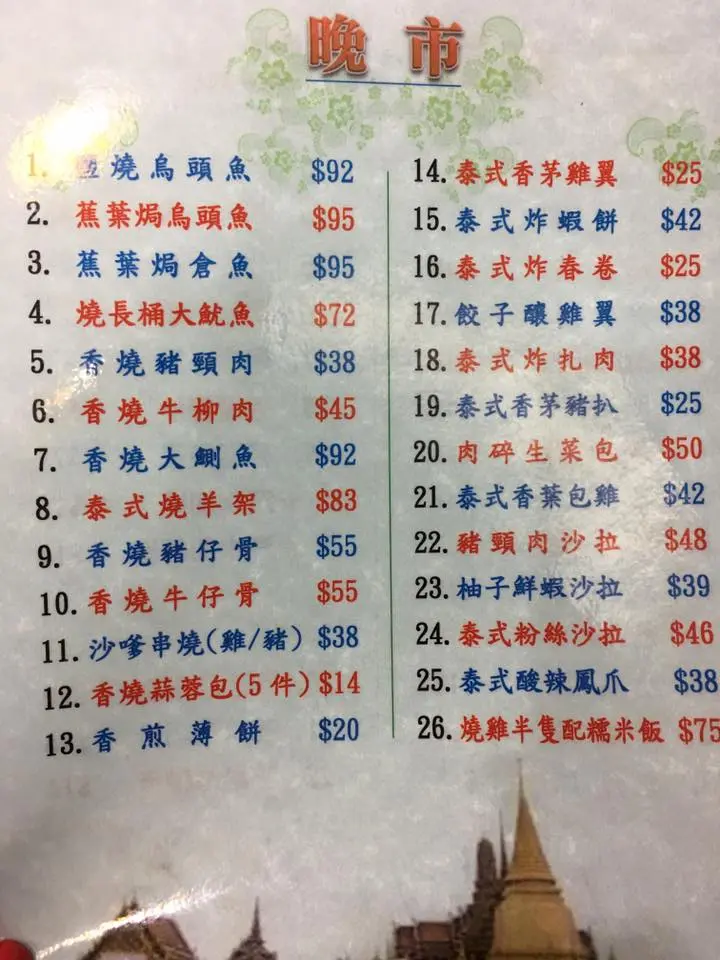 晚市
1. 燒烏頭魚 $92
2. 蕉葉焗烏頭魚 $95
3. 蕉葉焗倉魚 $95
4. 燒長桶大魷魚 $72
5. 香燒豬頸肉 $38
6. 香燒牛柳肉 $45
7. 香燒大鰂魚 $92
8. 泰式燒羊架 $83
9. 香燒豬仔骨 $55
10. 香燒牛仔骨 $55
11. 沙嗲串燒(雞/豬) $38
12. 香燒蒜蓉包(5件) $14
13. 香煎薄餅 $20
14. 泰式香茅雞翼 $25
15. 泰式炸蝦餅 $42
16. 泰式炸春卷 $25
17. 餃子釀雞翼 $38
18. 泰式炸扎肉 $38
19. 泰式香茅豬扒 $25
20. 肉碎生菜包 $50
21. 泰式香葉包雞 $42
22. 豬頸肉沙拉 $48
23. 柚子鮮蝦沙拉 $39
24. 泰式粉絲沙拉 $46
25. 泰式酸辣鳳爪 $38
26. 燒雞半隻配糯米飯 $75